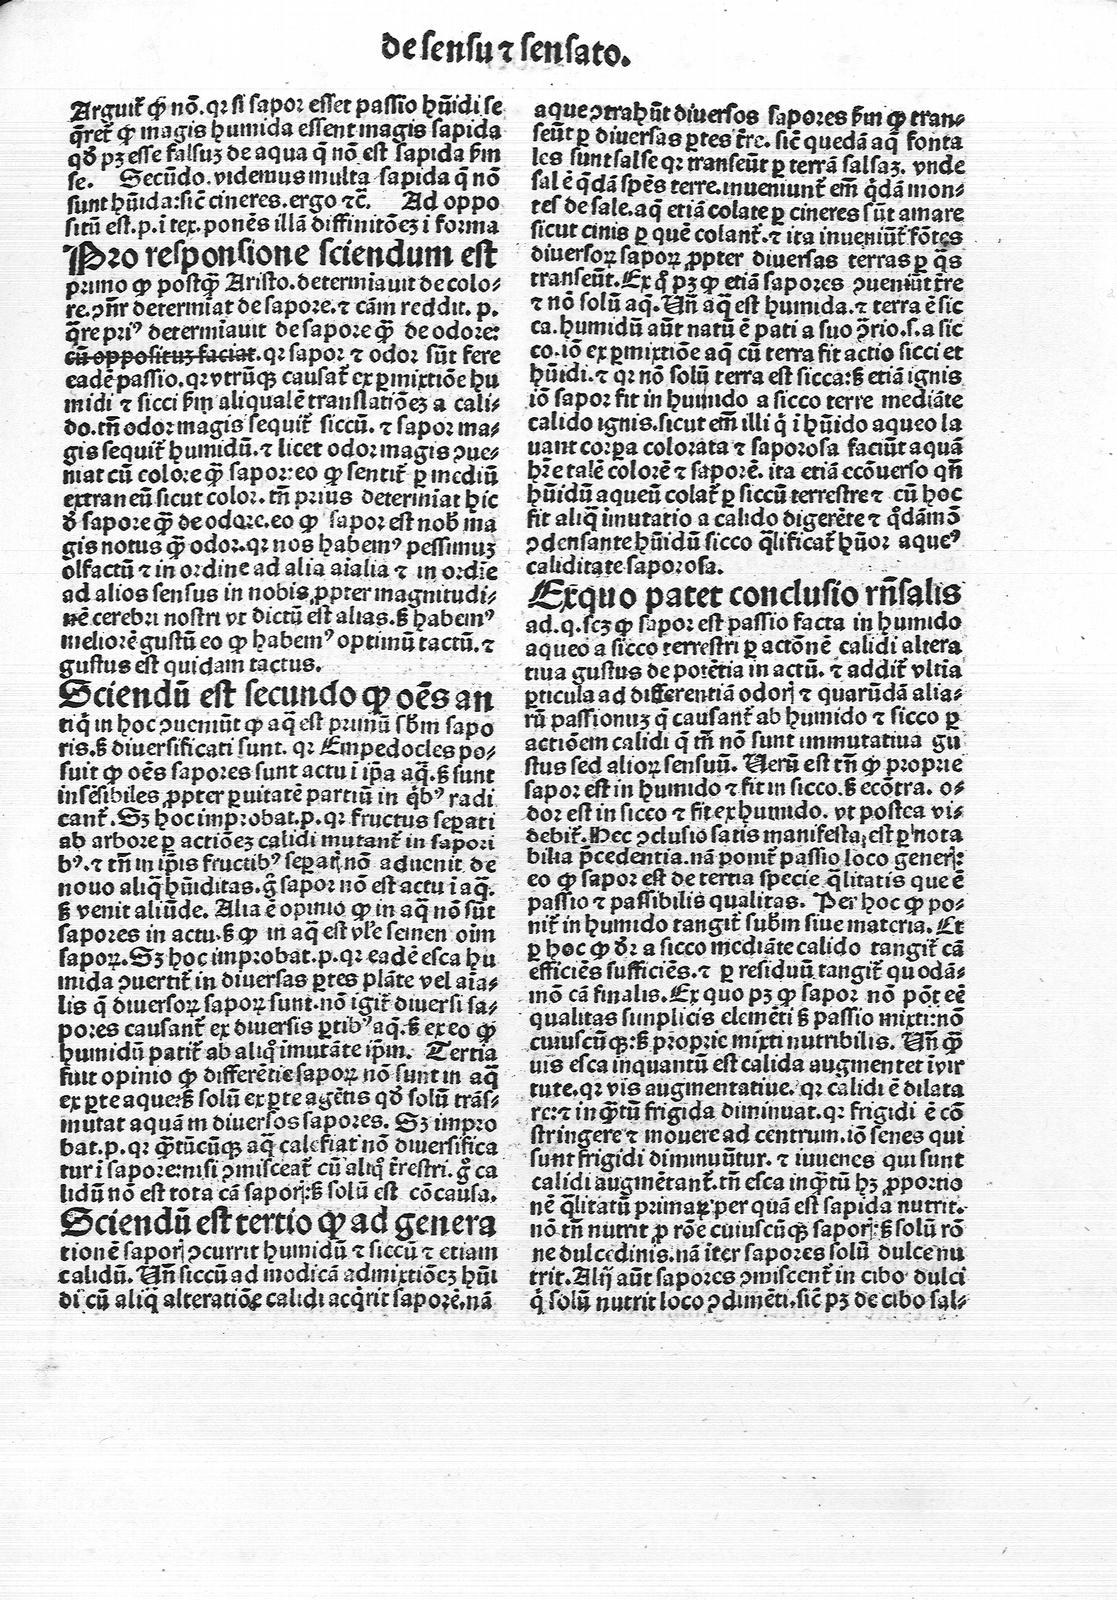 de sensu ⁊ sensato.
Arguit᷑ ꝙ nō. qꝛ si sapor esset passio hūidi se
q̄ret᷑ ꝙ magis humida essent magis sapida
qḋ pꝫ esse falsuꝫ de aqua q̄ nō est sapida ẜm
se. Secūdo. videmus multa sapida q̄ nō
sunt hūida: sic̄ cineres. ergo ⁊c̄. Ad oppo
sitū est. p. i tex. ponēs illā diffinitōeꝫ i forma
Pro responsione sciendum est
primo ꝙ postꝙ̄ Aristo. determiauit de colo⸗
re. ꝯn̄r determiat de sapore. ⁊ cām reddit. p.
q̄re priꝰ determiauit de sapore ꝙ̄ de odore:
cū opposituꝫ faciat. qꝛ sapor ⁊ odor sūt fere
eadē passio. qꝛ vtrūqꝫ causat᷑ ex ꝑmixtiōe hu
midi ⁊ sicci ẜm aliqualē translatiōeꝫ a cali⸗
do. tn̄ odor magis sequit᷑ siccū. ⁊ sapor ma⸗
gis sequit᷑ humidū. ⁊ licet odor magis ꝯue⸗
niat cū colore ꝙ̄ sapor: eo ꝙ sentit᷑ ꝑ mediū
extraneū sicut color. tn̄ prius determiat hic
ḋ sapore ꝙ̄ de odore. eo ꝙ sapor est nob̄ ma
gis notus ꝙ̄ odor. qꝛ nos habemꝰ pessimuꝫ
olfactū ⁊ in ordine ad alia aīalia ⁊ in ordīe
ad alios sensus in nobis ꝓpter magnitudi⸗
nē cerebri nostri vt dictū est alias. ꝫ̄ habemꝰ
meliorē gustū eo ꝙ habemꝰ optimū tactū. ⁊
gustus est quidam tactus.
Sciendū est secundo ꝙ oēs an
tiq̇ in hoc ꝯueniūt ꝙ aq̄ est primū sb̄m sapo
ris. ꝫ̄ diuersificati sunt. qꝛ Empedocles po⸗
suit ꝙ oēs sapores sunt actu i ip̄a aq̄. ꝫ̄ sunt
insēsibiles ꝓpter ꝑuitatē partiū in q̇bꝰ radi
cant᷑. Sꝫ hoc improbat. p. qꝛ fructus sepati
ab arbore ꝑ actiōeꝫ calidi mutant᷑ in sapori
bꝰ. ⁊ tn̄ in ip̄is fructibꝰ sepatꝭ nō aduenit de
nouo aliq̄ hūiditas. g̊ sapor nō est actu i aq̄.
ꝫ̄ venit aliūde. Alia ē opinio ꝙ in aq̄ nō sūt
sapores in actu. ꝫ̄ ꝙ in aq̄ est vl̄e semen oīm
sapoꝝ. Sꝫ hoc improbat. p. qꝛ eadē esca hu
mida ꝯuertit᷑ in diuersas ꝑtes plāte vel aīa⸗
lis q̄ diuersoꝝ sapoꝝ sunt. nō igit᷑ diuersi sa⸗
pores causant᷑ ex diuersis ꝑtibꝰ aq̄. ꝫ̄ ex eo ꝙ
humidū patit᷑ ab aliq̊ imutāte ip̄m. Tertia
fuit opinio ꝙ differētie sapoꝝ nō sunt in aq̄
ex ꝑte aque: ꝫ̄ solū ex ꝑte agētis qḋ solū trās⸗
mutat aquā in diuersos sapores. Sꝫ impro
bat. p. qꝛ ꝙ̄tūcūqꝫ aq̄ calefiat nō diuersifica
tur i sapore: nisi ꝯmisceat᷑ cū aliq̊ tr̄estri. g̊ ca
lidū nō est tota cā saporꝭ: ꝫ̄ solū est cōcausa.
Sciendū est tertio ꝙ ad genera
tionē saporꝭ ꝯcurrit humidū ⁊ siccū ⁊ etiam
calidū. Un̄ siccū ad modicā admixtiōeꝫ hūi
di cū aliq̄ alteratiōe calidi acq̇rit saporē. nā
aque ꝯtrahūt diuersos sapores ẜm ꝙ tran⸗
seūt ꝑ diuersas ꝑtes tr̄e. sic̄ quedā aq̄ fonta
les sunt salse qꝛ transeūt ꝑ terrā salsaꝫ. vnde
sal ē q̄dā spēs terre. inueniunt᷑ em̄ q̄dā mon⸗
tes de sale. aq̄ etiā colate ꝑ cineres sūt amare
sicut cinis ꝑ quē colant᷑. ⁊ ita inueniūt᷑ fōtes
diuersoꝝ sapoꝝ ꝓpter diuersas terras ꝑ q̄s
transeūt. Ex q̊ pꝫ ꝙ etiā sapores ꝯueniūt tr̄e
⁊ nō solū aq̄. Un̄ aq̄ est humida. ⁊ terra ē sic
ca. humidū aūt natū ē pati a suo ꝯ̄rio. s. a sic
co. iō ex ꝑmixtiōe aq̄ cū terra fit actio sicci et
hūidi. ⁊ qꝛ nō solū terra est sicca: ꝫ̄ etiā ignis
iō sapor fit in humido a sicco terre mediāte
calido ignis. sicut em̄ illi q̇ i hūido aqueo la
uant corꝑa colorata ⁊ saporosa faciūt aquā
hr̄e talē colorē ⁊ saporē. ita etiā ecōuerso qn̄
hūidū aqueū colat᷑ ꝑ siccū terrestre ⁊ cū hoc
fit aliq̄ imutatio a calido digerēte ⁊ q̊dāmō
ꝯdensante hūidū sicco q̄lificat᷑ hūor aqueꝰ
caliditate saporosa.
Ex quo patet conclusio rn̄salis
ad. q. scꝫ ꝙ sapor est passio facta in humido
aqueo a sicco terrestri ꝑ actōnē calidi altera
tiua gustus de potētia in actū. ⁊ addit᷑ vltīa
ꝑticula ad differentiā odorꝭ ⁊ quarūdā alia⸗
rū passionuꝫ q̄ causant᷑ ab humido ⁊ sicco ꝑ
actiōem calidi q̄ tn̄ nō sunt immutatiua gu
stus sed alioꝝ sensuū. Uerū est tn̄ ꝙ proprie
sapor est in humido ⁊ fit in sicco. ꝫ̄ ecōtra. o⸗
dor est in sicco ⁊ fit ex humido. vt postea vi⸗
debit᷑. Hec ꝯclusio satis manifesta est ꝑ nota
bilia p̄cedentia. nā ponit᷑ passio loco generꝭ:
eo ꝙ sapor est de tertia specie q̄litatis que ē
passio ⁊ passibilis qualitas. Per hoc ꝙ po⸗
nit᷑ in humido tangit᷑ sub̄m siue materia. Et
ꝑ hoc ꝙ dr̄ a sicco mediāte calido tangit᷑ cā
efficiēs sufficiēs. ⁊ ꝑ residuū tangit᷑ quodā⸗
mō cā finalis. Ex quo pꝫ ꝙ sapor nō pōt eē
qualitas simplicis elemēti ꝫ̄ passio mixti: nō
cuiuscūqꝫ: ꝫ̄ proprie mixti nutribilis. Un̄ ꝙ̄
uis esca inquantū est calida augmentet i vir
tute. qꝛ vis augmentatiue. qꝛ calidi ē dilata
re: ⁊ in ꝙ̄tū frigida diminuat. qꝛ frigidi ē cō
stringere ⁊ mouere ad centrum. iō senes qui
sunt frigidi diminuūtur. ⁊ iuuenes qui sunt
calidi augmētant᷑. tn̄ esca inꝙ̄tū hꝫ ꝓportio
nē q̄litatū primaꝝ per quā est sapida nutrit.
nō tn̄ nutrit ꝓ rōe cuiuscūqꝫ saporꝭ: ꝫ̄ solū rō
ne dulcedinis. nā iter sapores solū dulce nu
trit. Alij aūt sapores ꝯmiscent᷑ in cibo dulci
q̇ solū nutrit loco ꝯdimēti. sic̄ pꝫ de cibo sal⸗